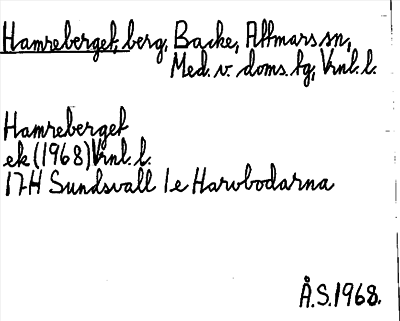 Hamreberget, berg, Backe, Attmars sn,
Med. v. doms. tg, Vrnl. l.
Hamreberget
ek (1968) Vrnl. l.
17H Sundsvall 1e Harvbodarna
Å.S. 1968.